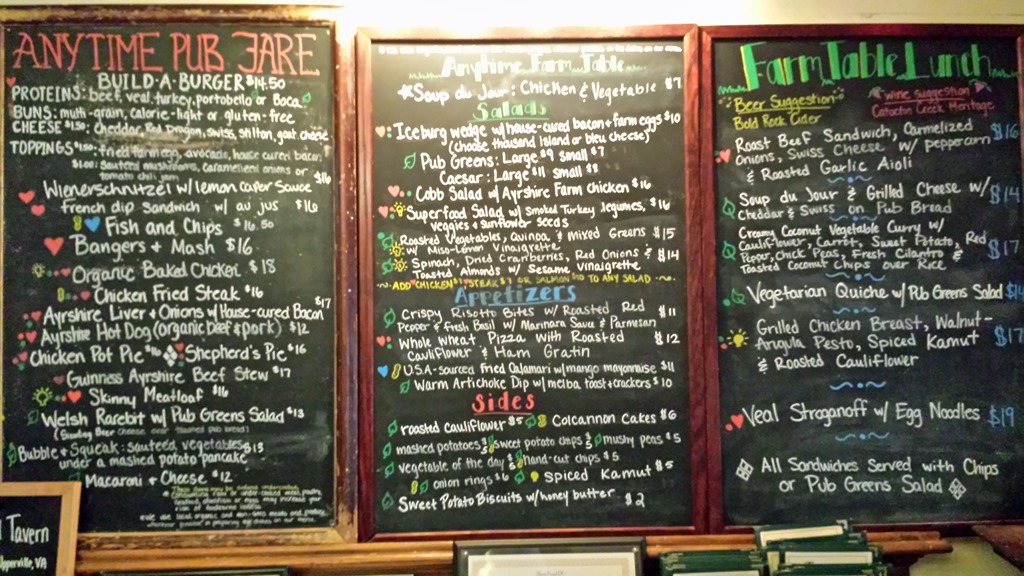 ANYTIME PUB FARE
BUILD-A-BURGER $14.50
PROTEINS: beef, veal, turkey, portobello or Boca
BUNS: multi-grain, calorie-light or gluten-free
CHEESE $1.50: cheddar, Red Dragon, swiss, stilton, goat cheese
TOPPINGS $1.50: fried farm egg, avocado, house cured bacon
$1.00: Sauteed mushrooms, caramelized onions or
tomato chili jam
Wienerschnitzel w/ lemon caper Sauce $16
french dip sandwich w/ au jus $16
Fish and Chips $16.50
Bangers + Mash $16
Organic Baked Chicken $18
Chicken Fried Steak $16
Ayrshire Liver + Onions w/ House-cured Bacon $17
Ayrshire Hot Dog (organic beef & pork) $12
Chicken Pot Pie $16 Shepherd's Pie $16
Guinness Ayrshire Beef Stew $17
Skinny Meatloaf $16
Welsh Rarebit w/ Pub Greens Salad $13
Bubble & Squeak: sauteed vegetables $13
under a mashed potato pancake
Macaroni & Cheese $12
Tavern
Upperville, VA
Anytime Farm Table
Soup du Jour: Chicken & Vegetable $7
Salads
Iceburg wedge w/ house-cured bacon + farm eggs $10
(choose thousand island or bleu cheese)
Pub Greens: Large $9 small $7
Caesar: Large $11 small $8
Cobb Salad w/ Ayrshire Farm Chicken $16
Superfood Salad w/ Smoked Turkey, legumes, $16
veggies & sunflower seeds
Roasted Vegetables, Quinoa, & Mixed Greens $15
w/ Miso-Lemon Vinaigrette
Spinach, Dried Cranberries, Red Onions & $14
Toasted Almonds w/ Sesame Vinaigrette
ADD CHICKEN STEAK $7 OR SALMON $10 TO ANY SALAD
Appetizers
Crispy Risotto Bites w/ Roasted Red $11
Pepper & Fresh Basil w/ Marinara Sauce & Parmesan
Whole Wheat Pizza with Roasted $12
Cauliflower & Ham Gratin
U.S.A-sourced Fried Calamari w/ mango mayonnaise $11
Warm Artichoke Dip w/ melba toast + crackers $10
Sides
roasted Cauliflower $5 Colcannon Cakes $6
mashed potatoes $5 sweet potato chips $5 mushy peas $5
vegetable of the day $5 hand-cut chips $5
onion rings $6 Spiced Kamut $5
Sweet Potato Biscuits w/ honey butter $2
Farm Table Lunch
Beer Suggestion
Bold Rock Cider
wine suggestion
Catoctin Creek Meritage
Roast Beef Sandwich, Carmelized $16
Onions, Swiss Cheese w/ peppercorn
& Roasted Garlic Aioli
Soup du Jour & Grilled Cheese w/ $14
Cheddar & Swiss on Pub Bread
Creamy Coconut Vegetable Curry w/
Cauliflower, Carrot, Sweet Potato, Red $17
Pepper, Chick Peas, Fresh Cilantro &
Toasted Coconut Chips over Rice
Vegetarian Quiche w/ Pub Greens Salad $14
Grilled Chicken Breast, Walnut- $17
Arugula Pesto, Spiced Kamut
& Roasted Cauliflower
Veal Stroganoff w/ Egg Noodles $19
All Sandwiches Served with Chips
or Pub Greens Salad